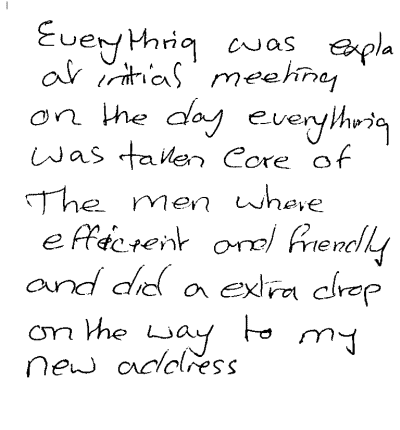 Everything was expla
at initial meeting
on the day everything
was taken care of
The men where
efficient and friendly
and did a extra drop
on the way to my
new address